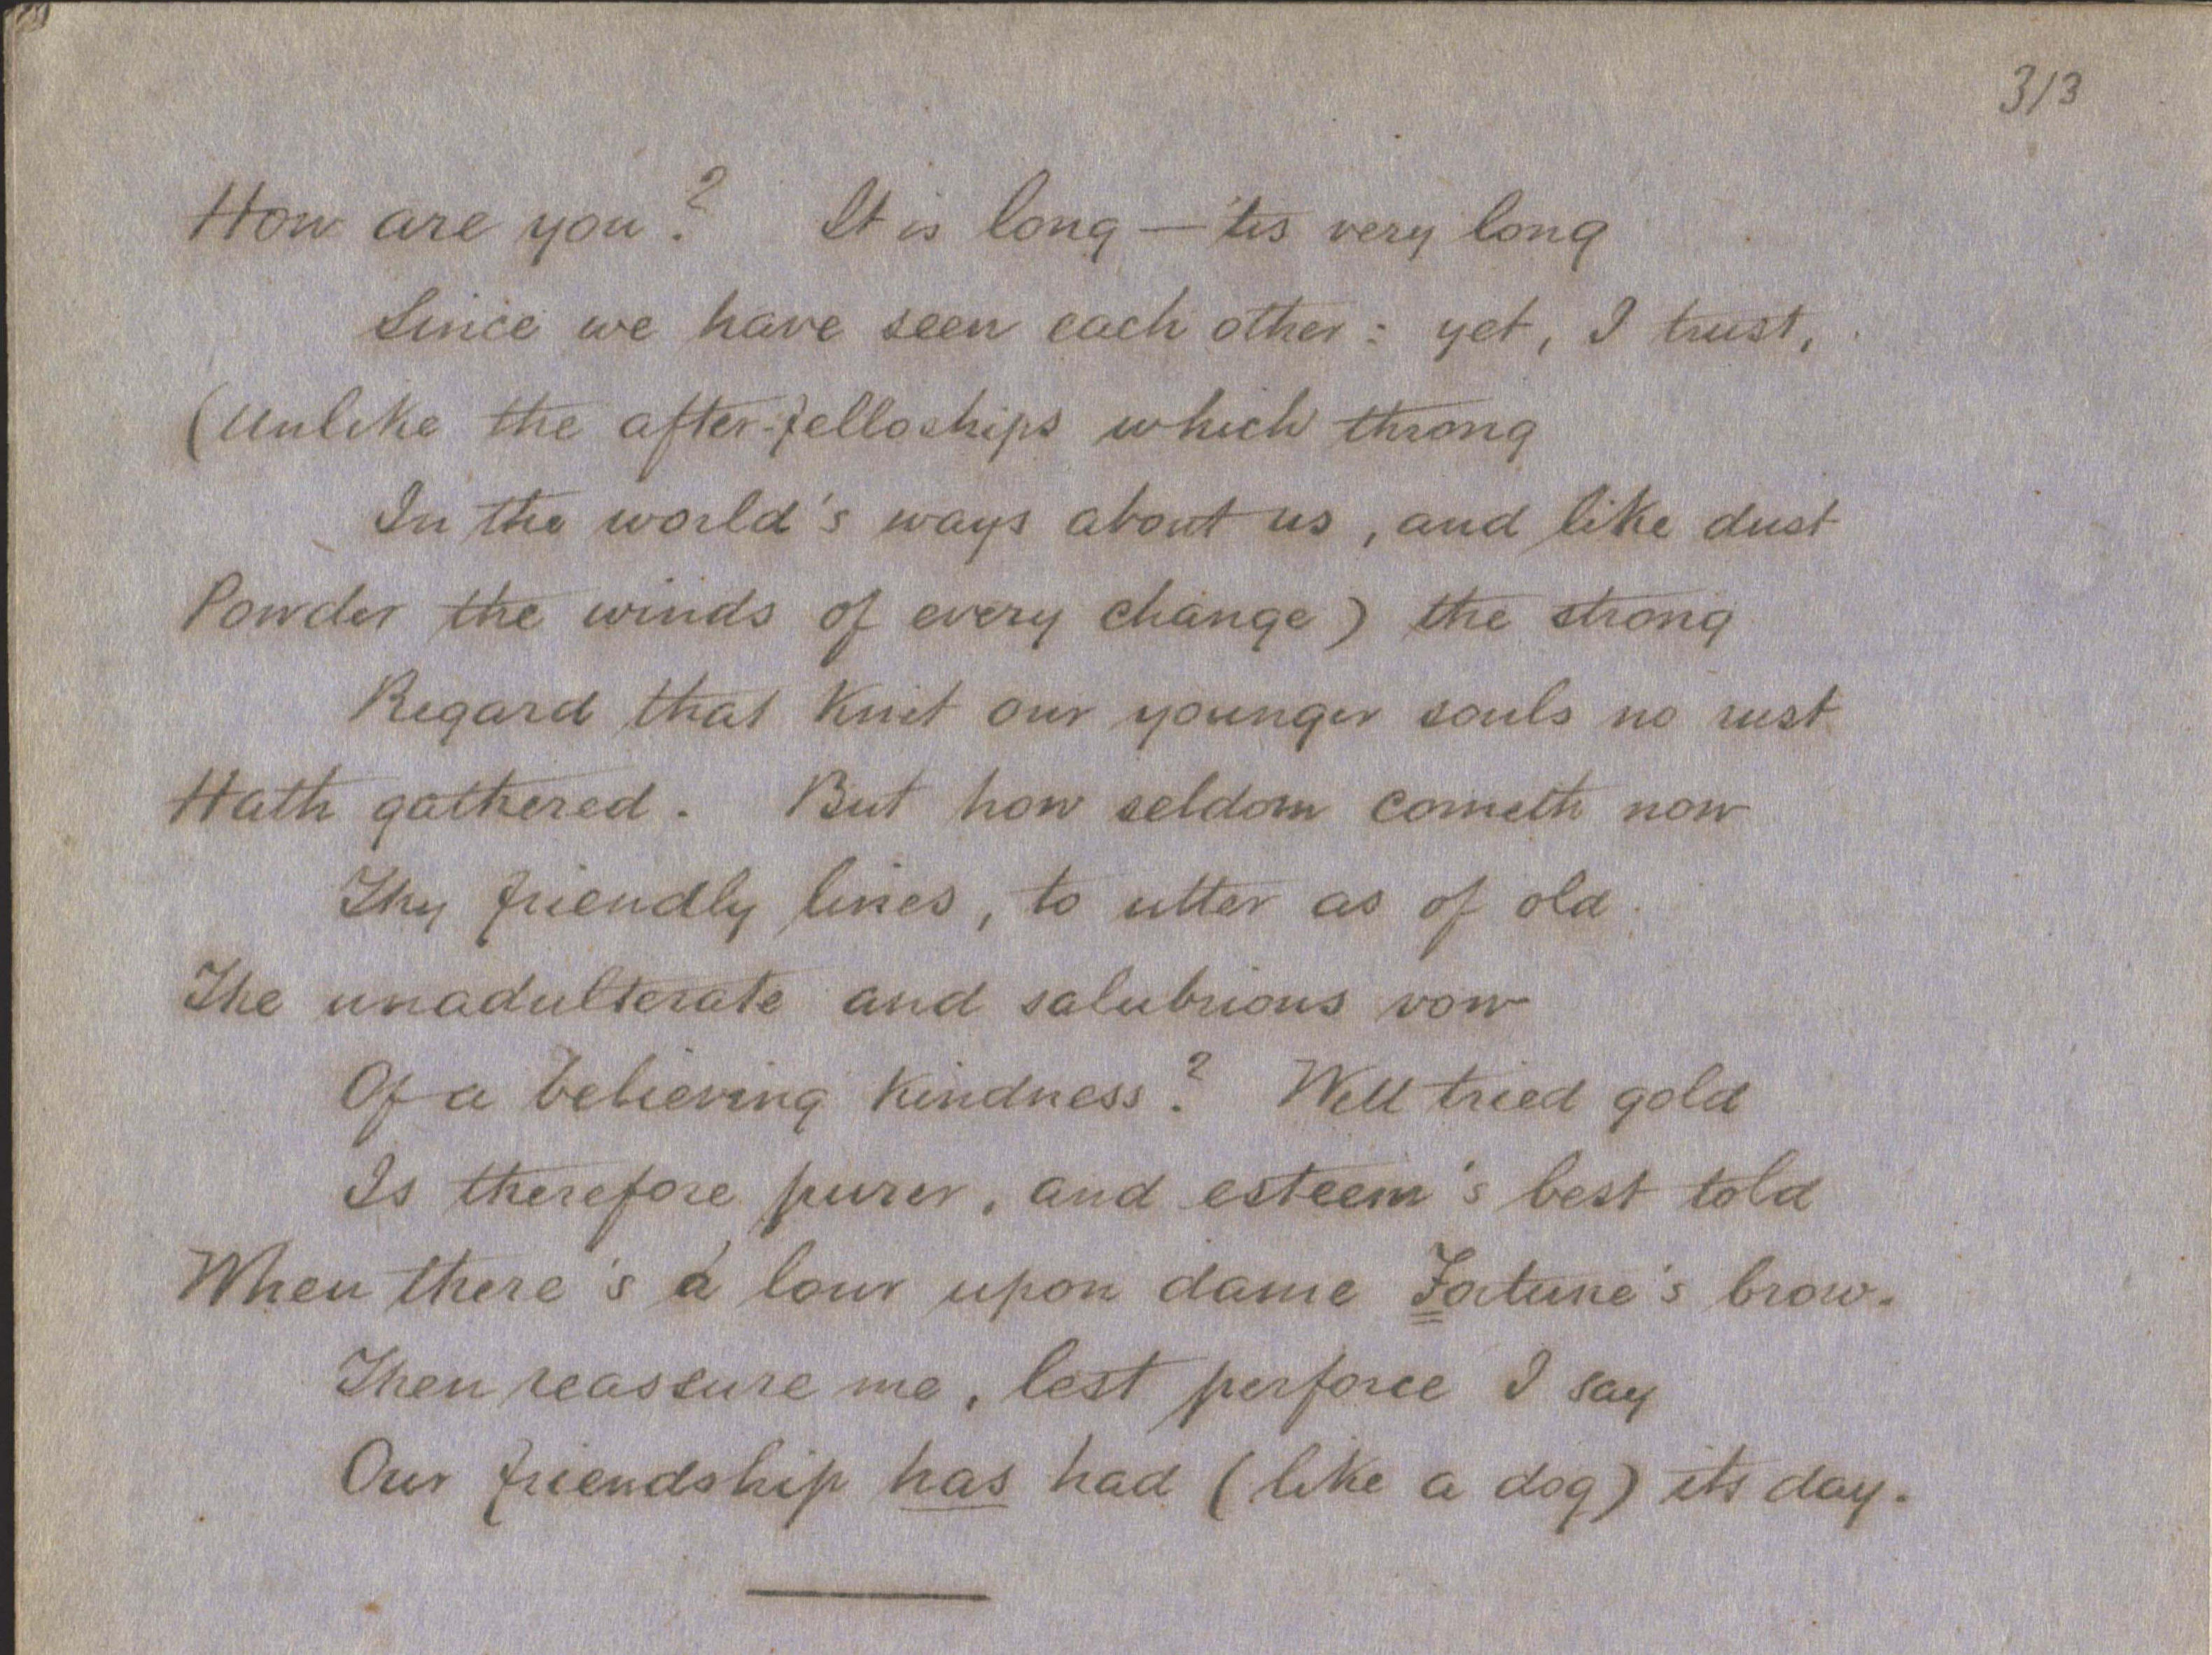 313
How are you? It is long — 'tis very long
Since we have seen each other: yet, I trust,
(Unlike the after-felloships which throng
In the world's ways about us, and like dust
Powder the winds of every change) the strong
Regard that knit our younger souls no rust
Hath gathered. But how seldom cometh now
Thy friendly lines, to utter as of old
The unadulterate and salubrious vow
Of a believing kindness? Well tried gold
Is therefore purer, and esteem's best told
When there's a lour upon dame Fortune's brow.
Then reassure me, lest perforce I say
Our friendship has had (like a dog) its day.